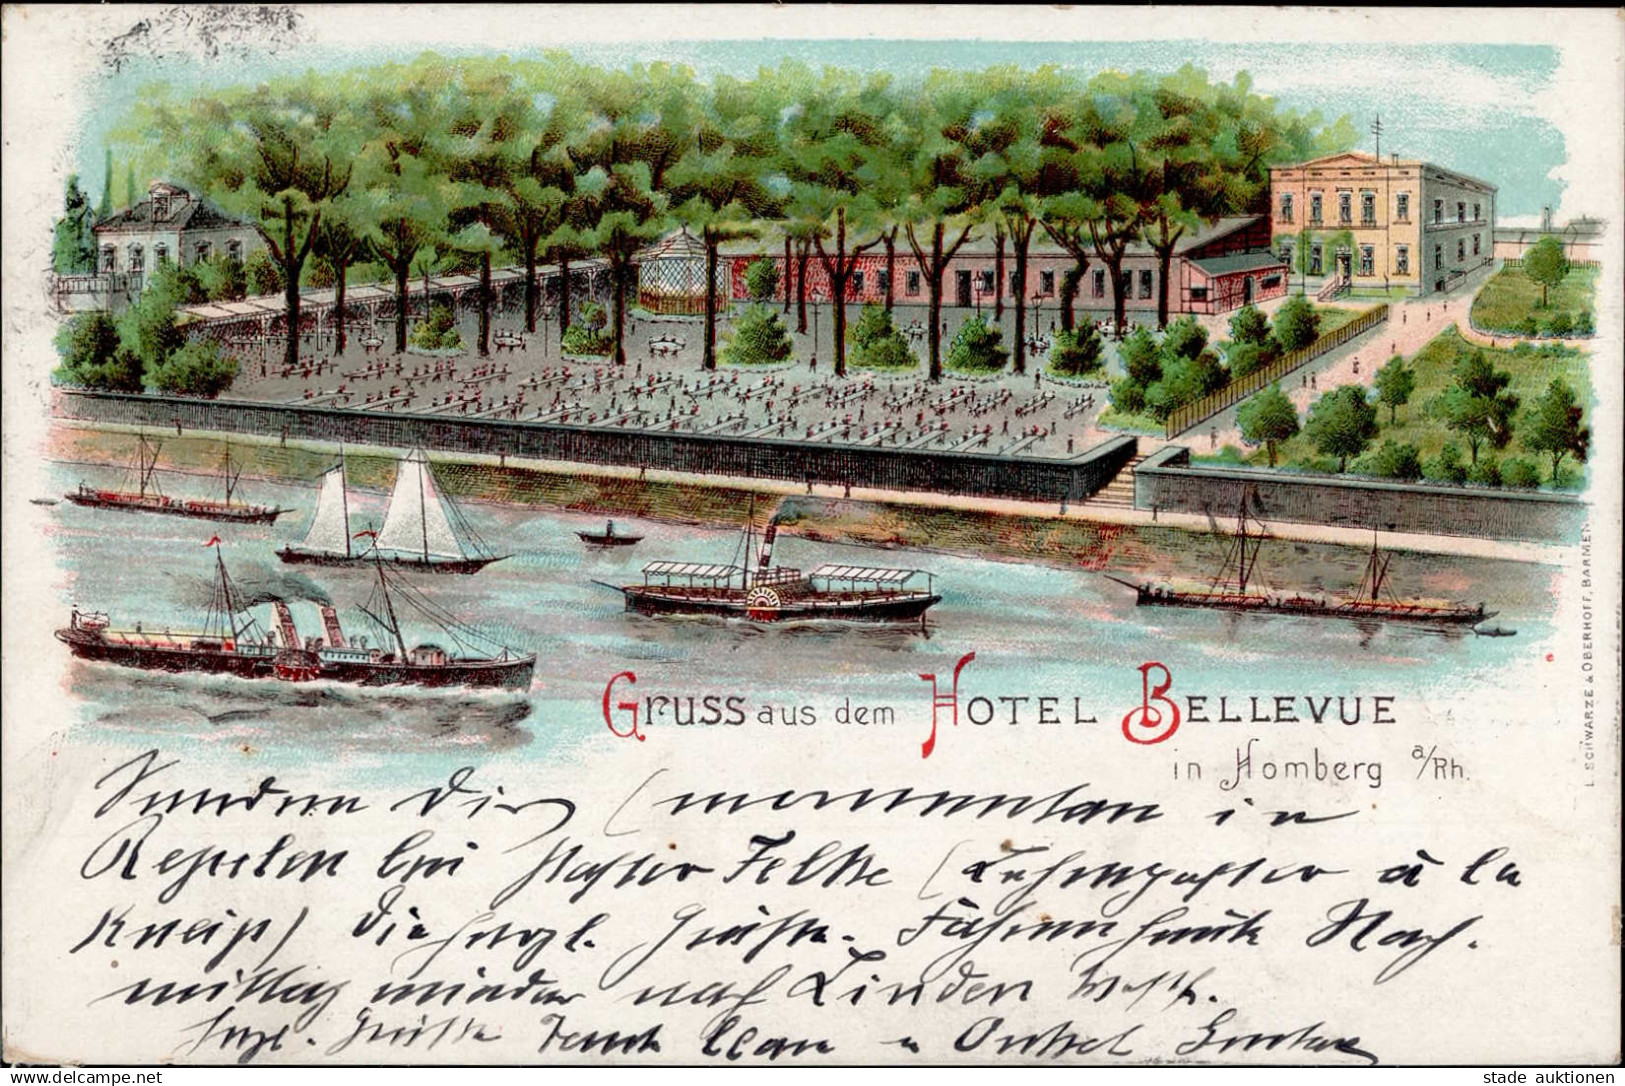 GRUSS aus dem HOTEL BELLEVUE
in Homberg a/Rh.
L. SCHWARZE & OBERHOFF, BARMEN
Senden Dir (momentan in
Repelen bei Pastor Felke (Lehmpastor à la
Kneip) die herzl. Grüße. Fahren heute Nach-
mittag wieder nach Linden
herzl. Grüße Onkel Gustav
www.delcampe.net
stade auktionen